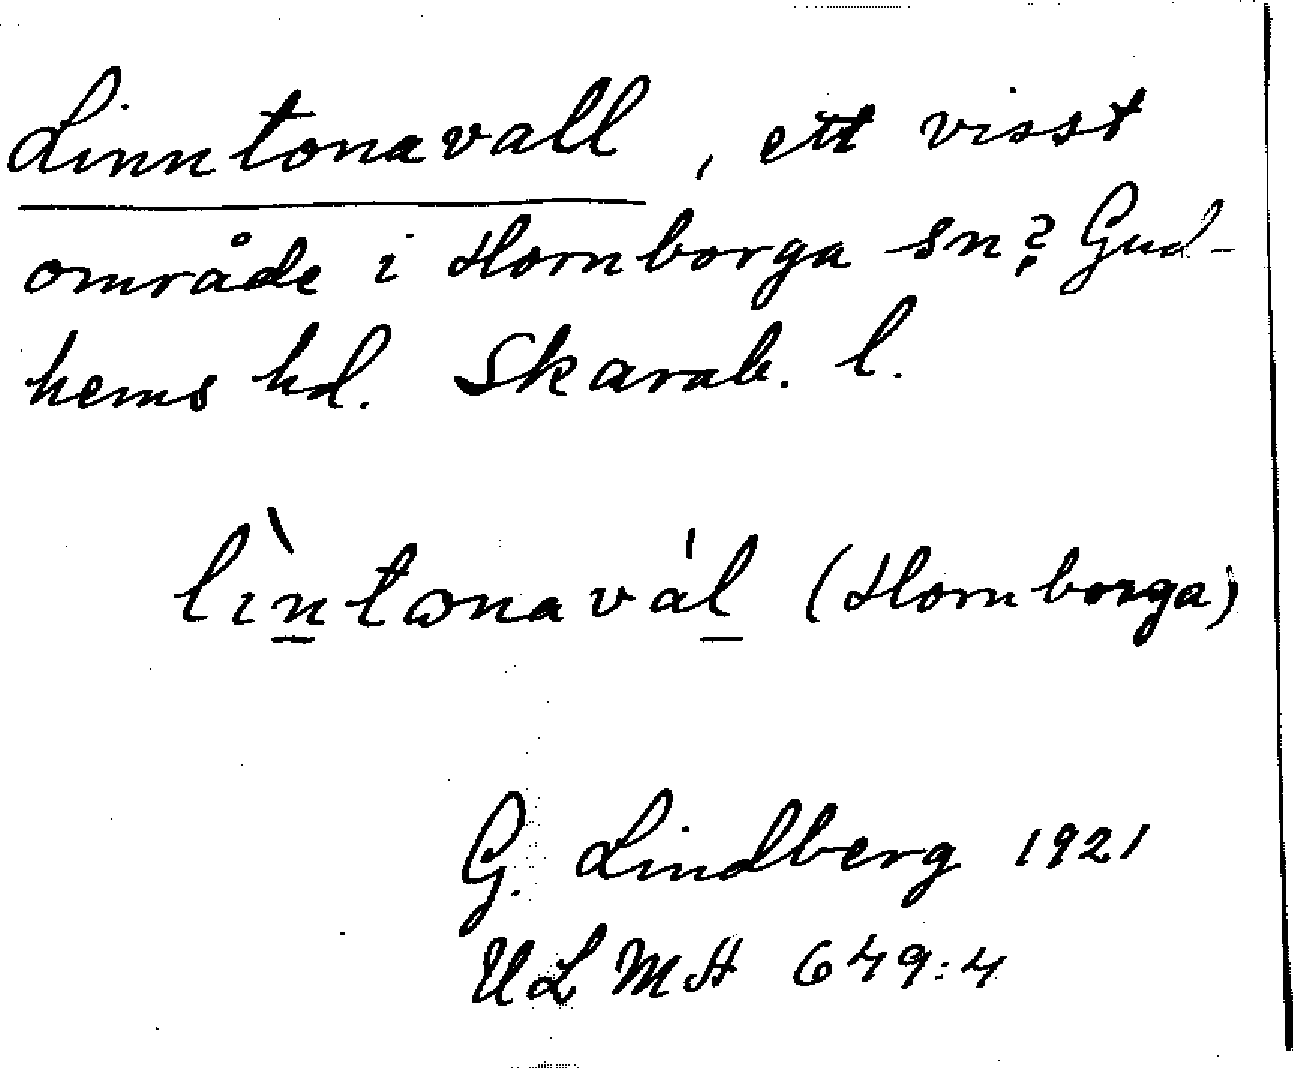 Linntonavall, ett visst
område i Hornborga sn? Gud-
hems hd. Skarab. l.
lìntɷnavál (Hornborga)
G. Lindberg 1921
ULMA 649:4